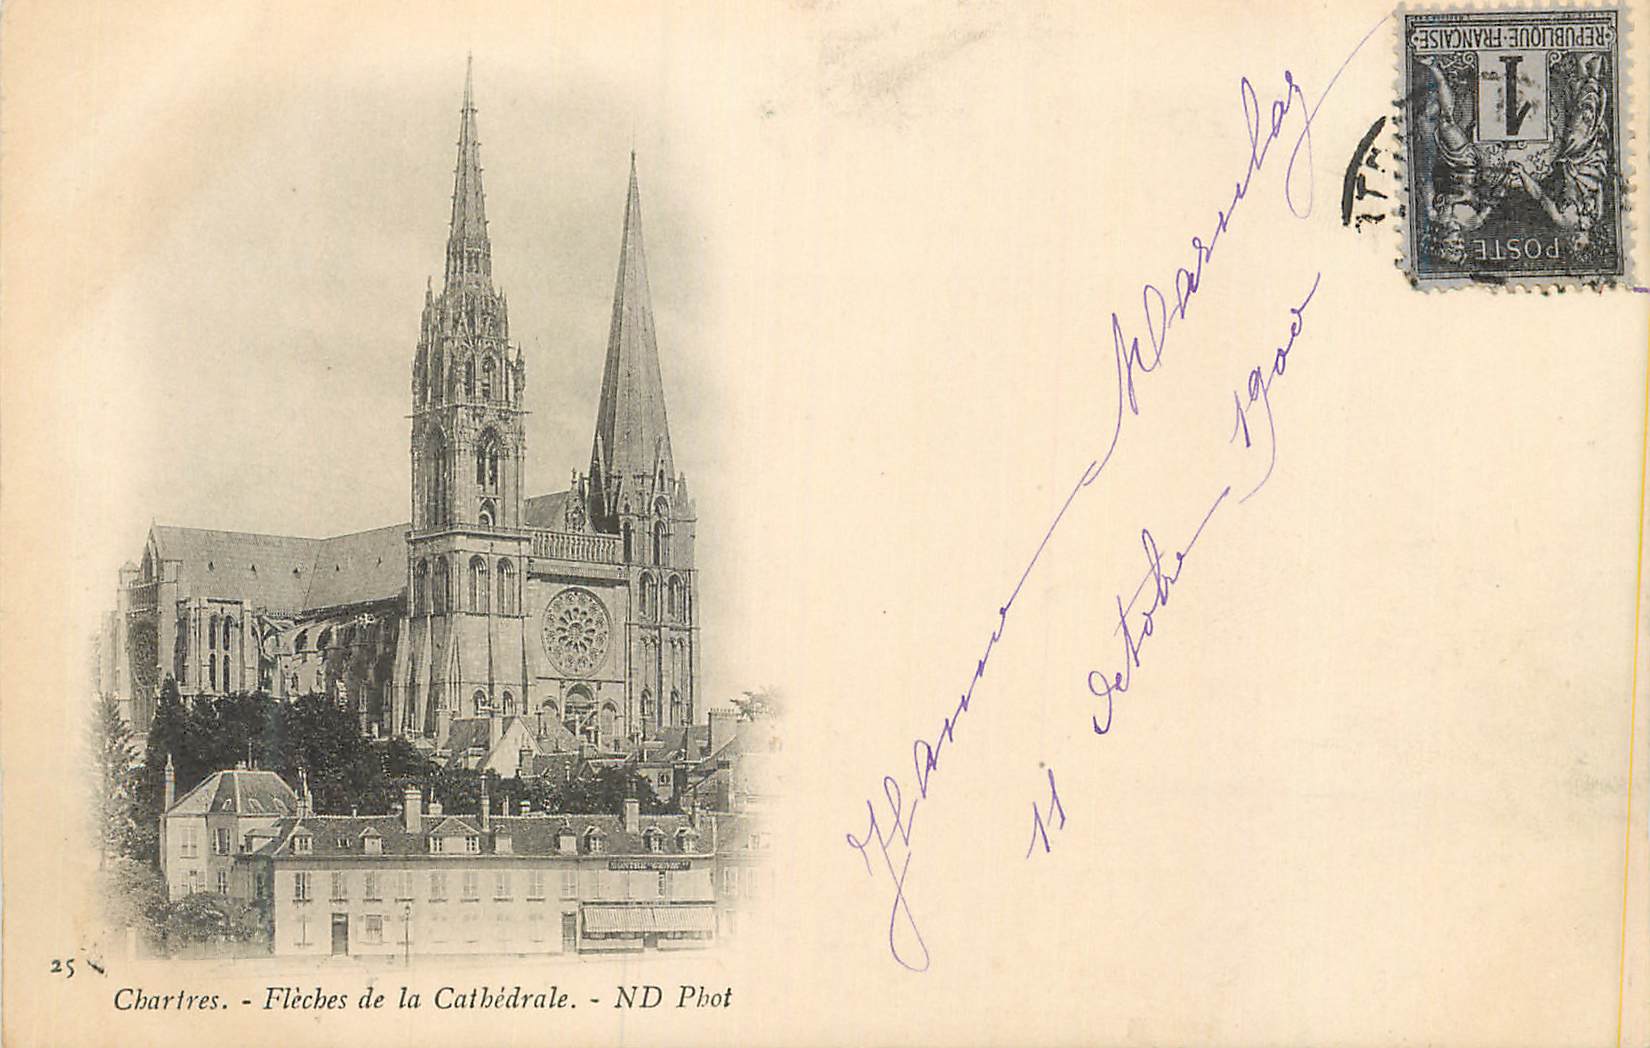 REPUBLIQUE·FRANÇAISE
1
POSTE
Jeanne
11 Octobre 1900
25
Chartres. - Flèches de la Cathédrale. - ND Phot